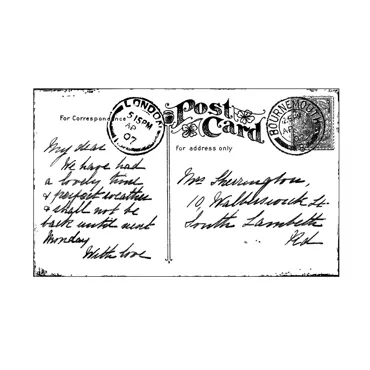 For Correspondence
LONDON
5.15PM
AP
07
Post Card
BOURNEMOUTH
AP
For address only
My dear
We have had
a lovely time
& perfect weather
& shall not be
back until next
Monday
With love
Mrs Sherrington,
10, Wallerswick St.
South Lambeth
Rd